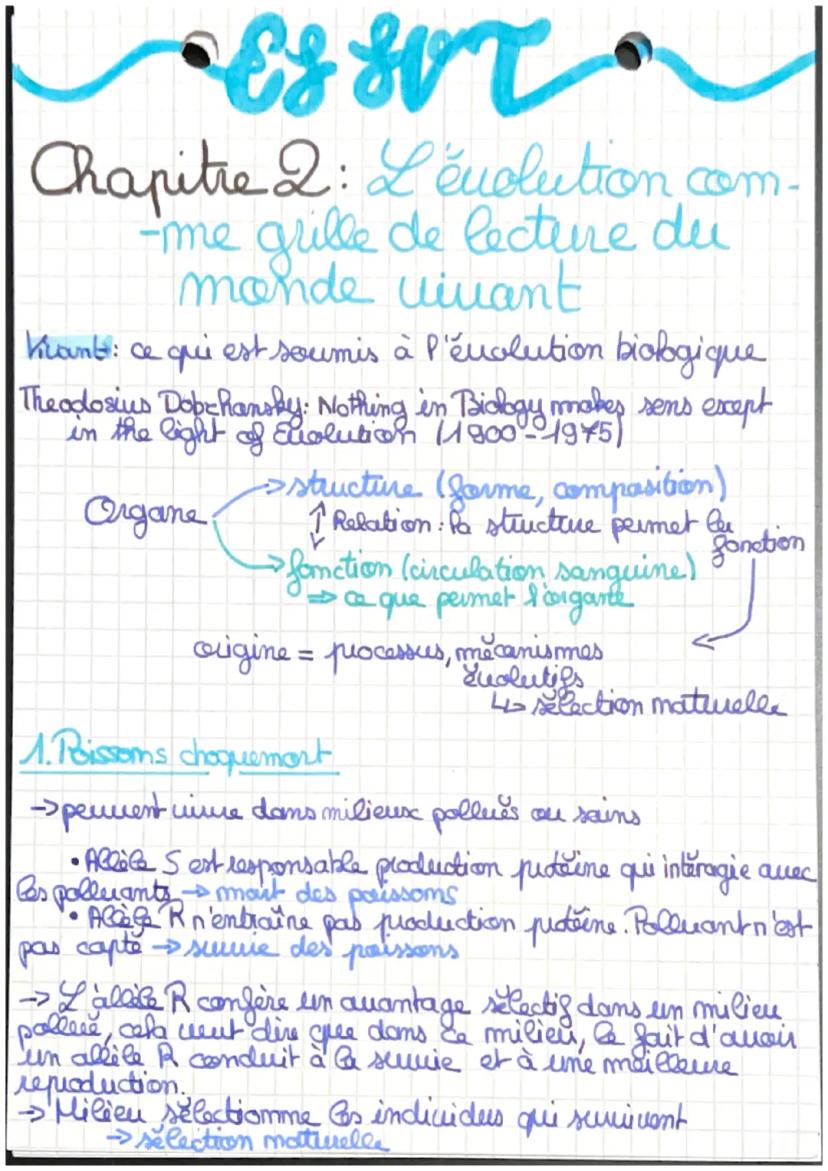 ES SVT
Chapitre 2: L'évolution com-
-me grille de lecture du
monde vivant
Vivant: ce qui est soumis à l'évolution biologique
Theodosius Dobzhansky: Nothing in Biology makes sens except
in the light of Evolution (1900-1975)
structure (forme, composition)
Organe
Relation: la structure permet la
fonction
fonction (circulation sanguine)
⇒ ce que permet l'organe
origine = processus, mécanismes
évolutifs
↳ sélection naturelle
1. Poissons choquemort
→ peuvent vivre dans milieux pollués ou sains
• Allèle S est responsable production protéine qui intéragie avec
les polluants → mort des poissons
• Allèle R n'entraîne pas production protéine. Polluant n'est
pas capté → survie des poissons
→ L'allèle R confère un avantage sélectif dans un milieu
pollué, cela veut dire que dans ce milieu, le fait d'avoir
un allèle R conduit à la survie et à une meilleure
reproduction.
→ Milieu sélectionne les individus qui survivent
→ sélection naturelle